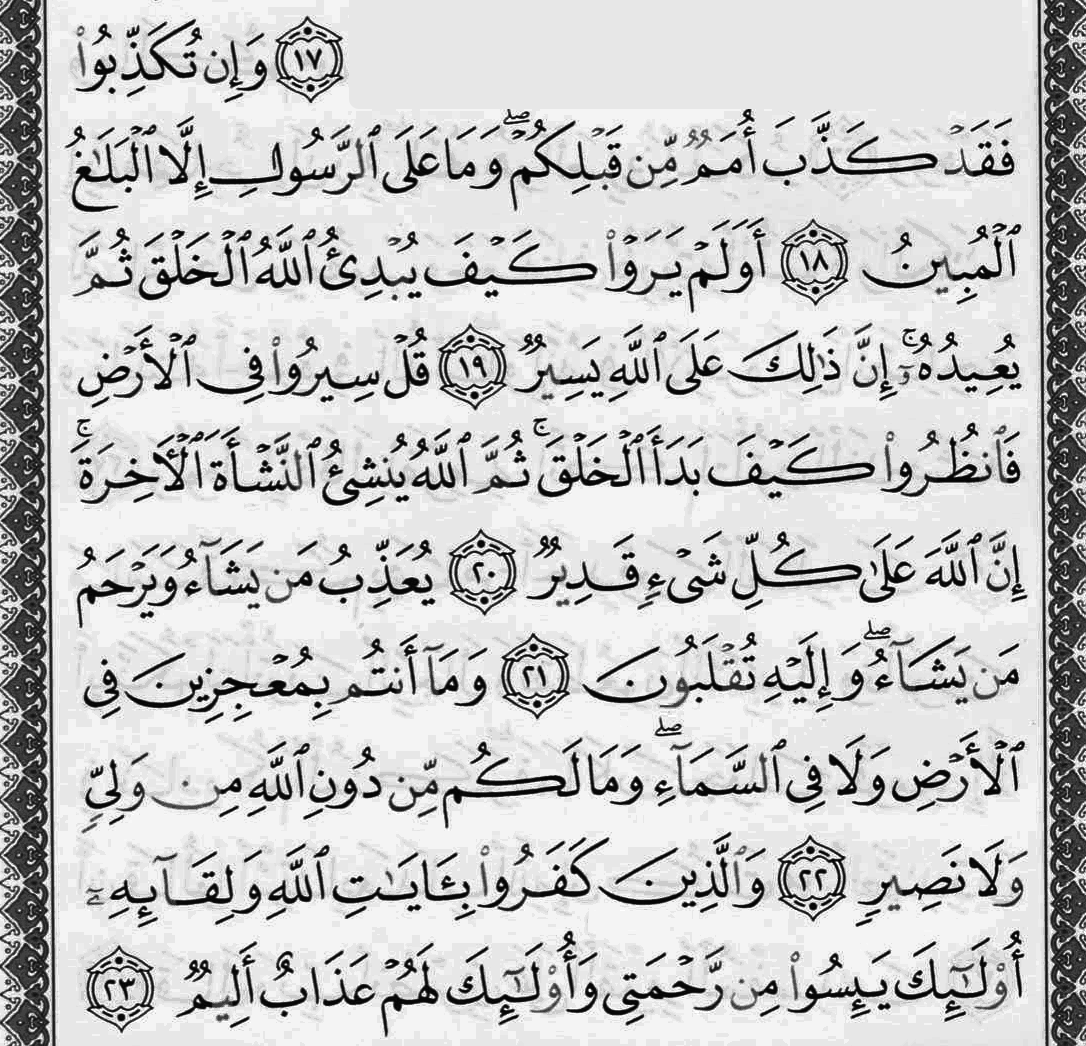 ﴿١٧﴾ وَإِن تُكَذِّبُوا۟
فَقَدْ كَذَّبَ أُمَمٌ مِّن قَبْلِكُمْ ۖ وَمَا عَلَى ٱلرَّسُولِ إِلَّا ٱلْبَلَـٰغُ
ٱلْمُبِينُ ﴿١٨﴾ أَوَلَمْ يَرَوْا۟ كَيْفَ يُبْدِئُ ٱللَّهُ ٱلْخَلْقَ ثُمَّ
يُعِيدُهُۥٓ ۚ إِنَّ ذَٰلِكَ عَلَى ٱللَّهِ يَسِيرٌ ﴿١٩﴾ قُلْ سِيرُوا۟ فِى ٱلْأَرْضِ
فَٱنظُرُوا۟ كَيْفَ بَدَأَ ٱلْخَلْقَ ۚ ثُمَّ ٱللَّهُ يُنشِئُ ٱلنَّشْأَةَ ٱلْـَٔاخِرَةَ ۚ
إِنَّ ٱللَّهَ عَلَىٰ كُلِّ شَىْءٍ قَدِيرٌ ﴿٢٠﴾ يُعَذِّبُ مَن يَشَآءُ وَيَرْحَمُ
مَن يَشَآءُ ۖ وَإِلَيْهِ تُقْلَبُونَ ﴿٢١﴾ وَمَآ أَنتُم بِمُعْجِزِينَ فِى
ٱلْأَرْضِ وَلَا فِى ٱلسَّمَآءِ ۖ وَمَا لَكُم مِّن دُونِ ٱللَّهِ مِن وَلِىٍّ
وَلَا نَصِيرٍ ﴿٢٢﴾ وَٱلَّذِينَ كَفَرُوا۟ بِـَٔايَـٰتِ ٱللَّهِ وَلِقَآئِهِۦٓ
أُو۟لَـٰٓئِكَ يَئِسُوا۟ مِن رَّحْمَتِى وَأُو۟لَـٰٓئِكَ لَهُمْ عَذَابٌ أَلِيمٌ ﴿٢٣﴾